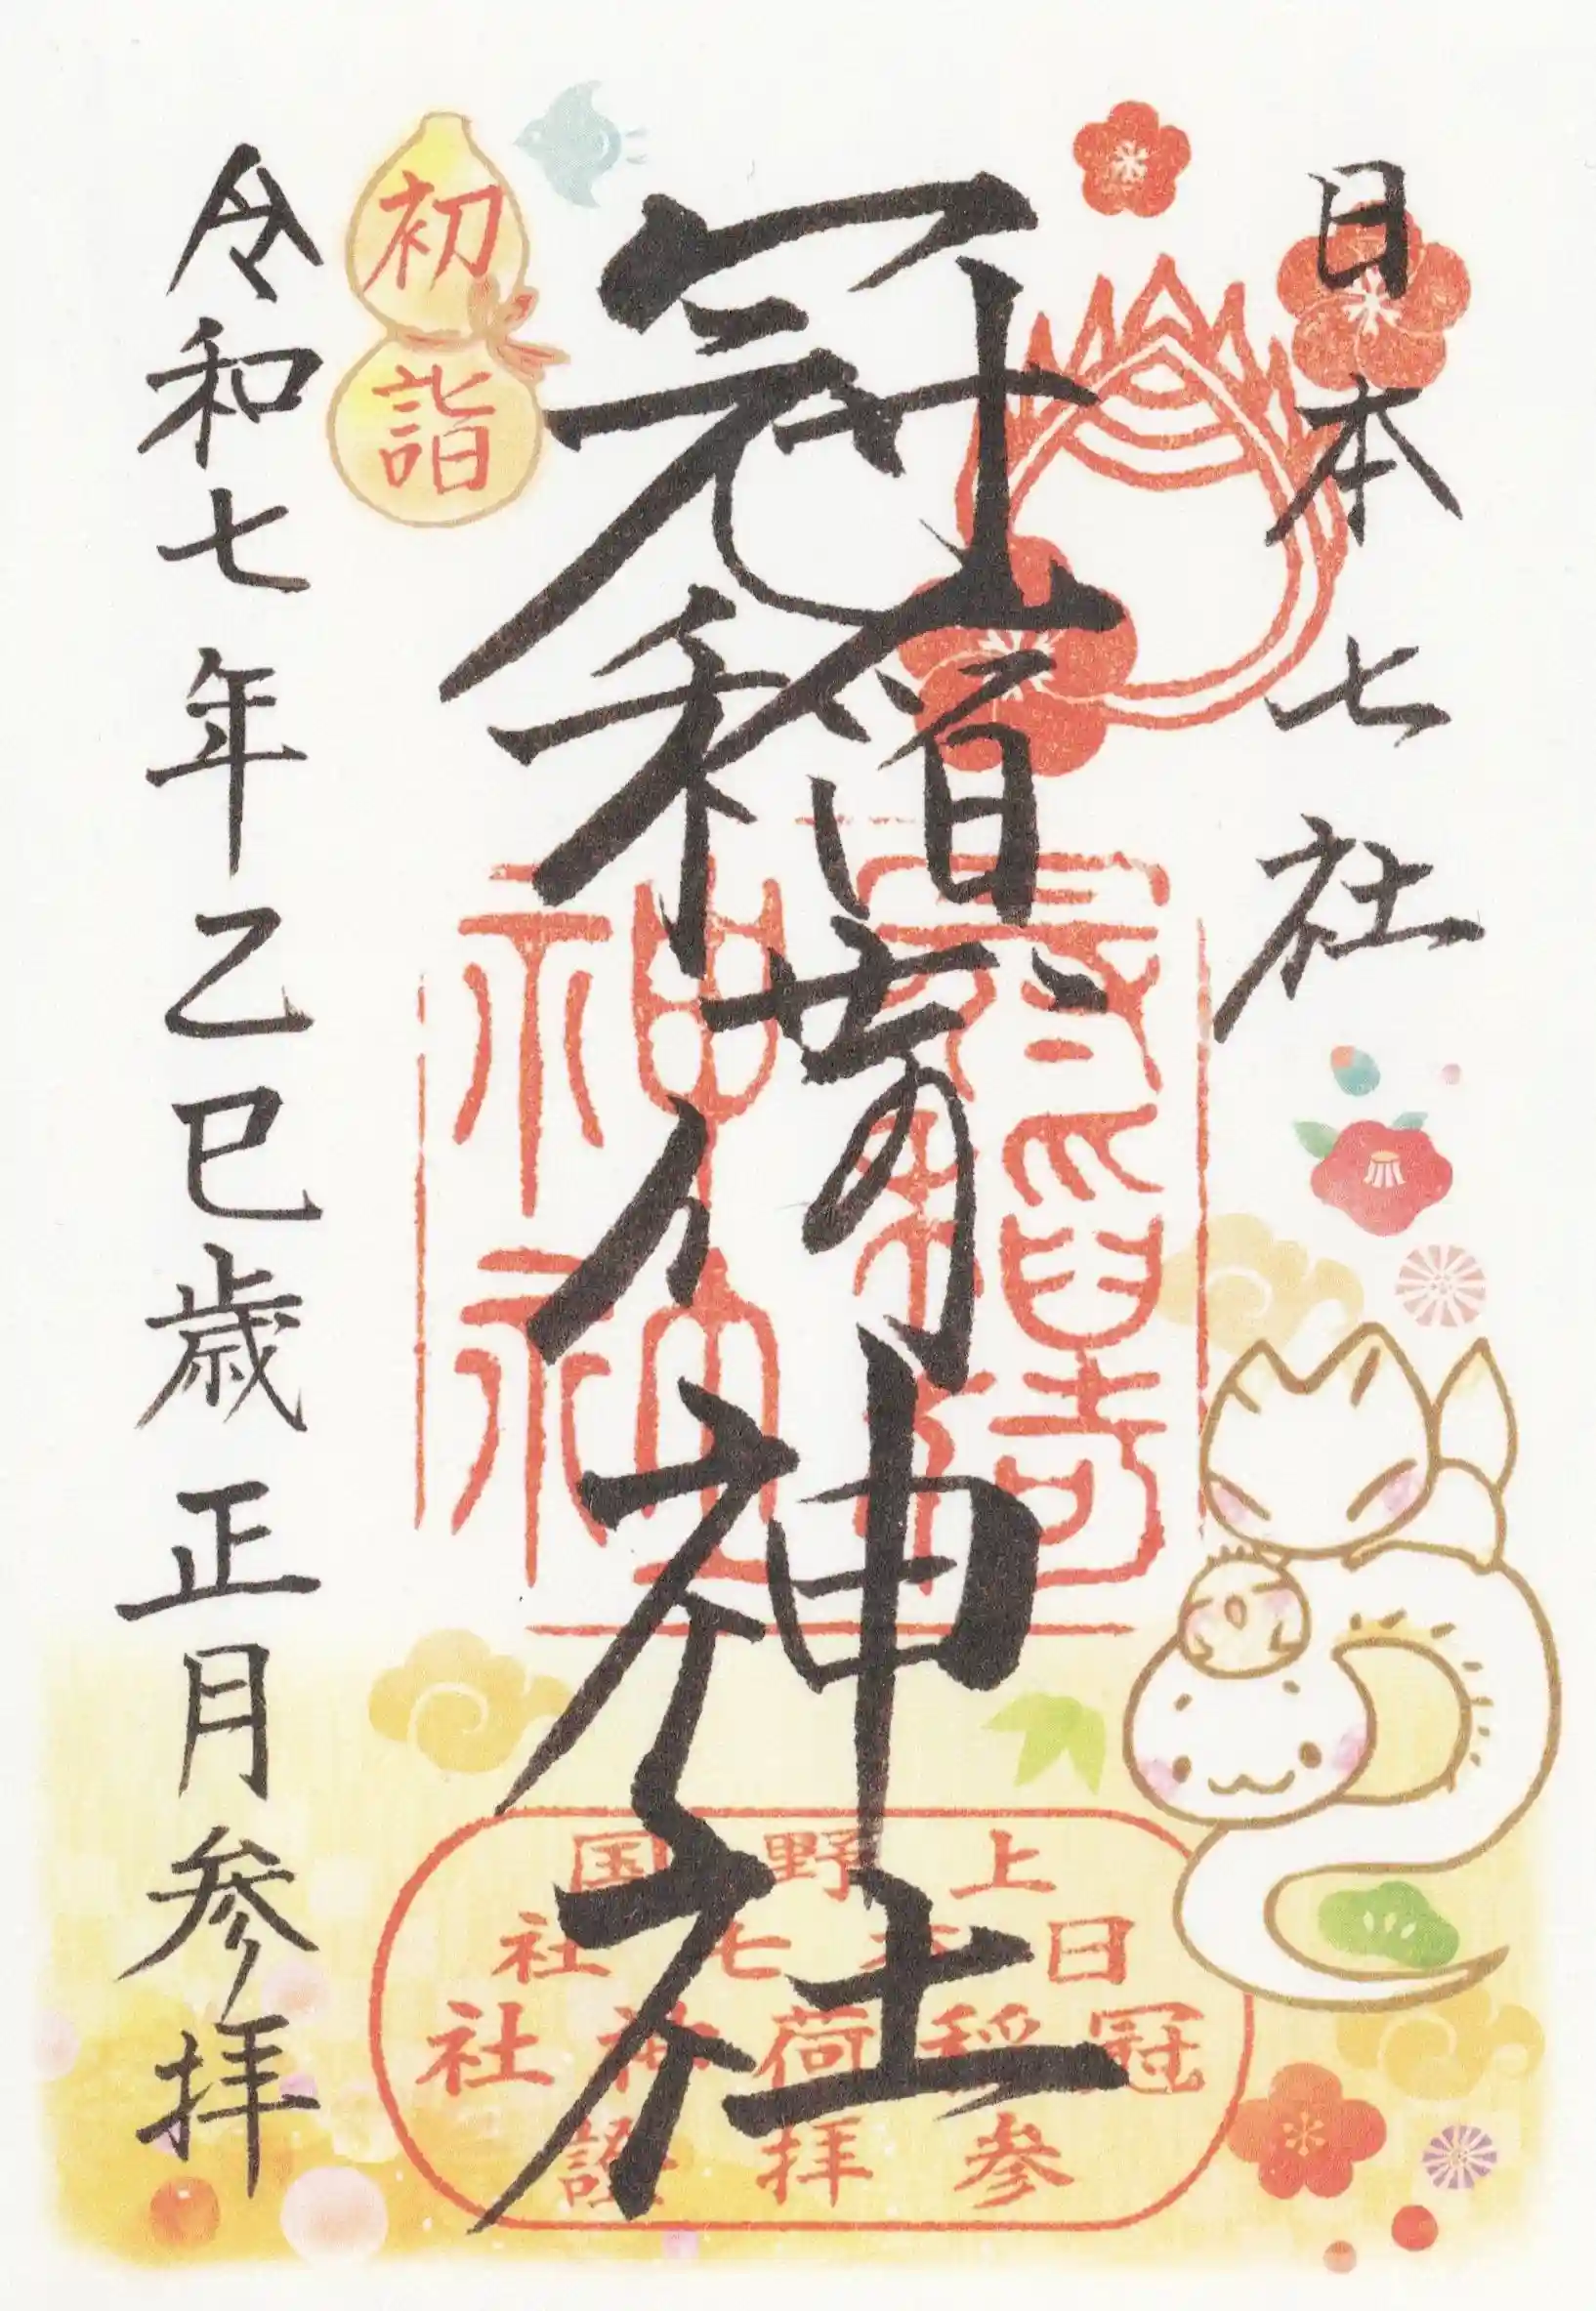 日本七社
冠稲荷神社
初詣
令和七年乙巳歳正月参拝
上野国
日本七社
冠稲荷神社
参拝証